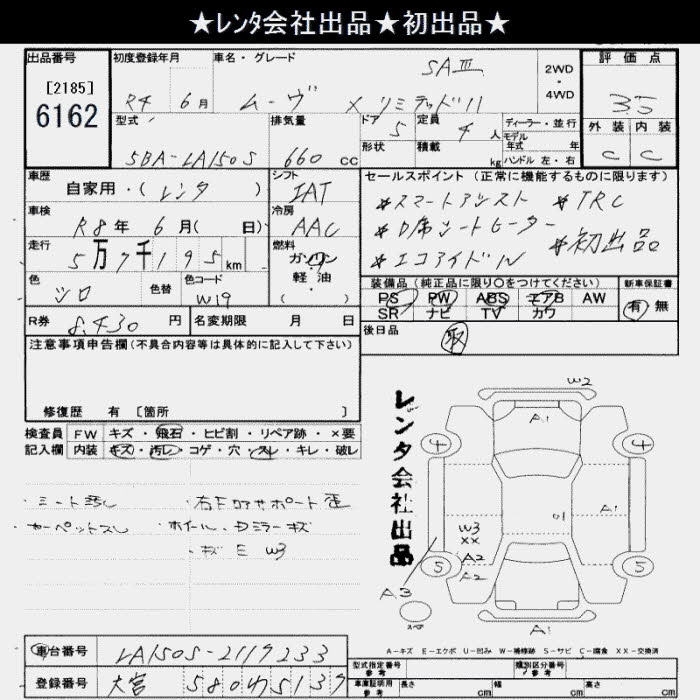 ★レンタ会社出品★初出品★
出品番号
[2185]
6162
初度登録年月
R4 6月
車名・グレード
ムーヴ X リミテッドII
SAIII
2WD
・
4WD
評価点
3.5
外装 内装
C C
型式
5BA-LA150S
排気量
660 cc
ドア 5
形状
定員 4人
積載 kg
ディーラー・並行
モデル
年式 年
ハンドル 左・右
車歴
自家用・(レンタ)
車検
R8年 6月( 日)
走行
5万7千195km
色
シロ
色替
色コード
W19
シフト
IAT
冷房
AAC
燃料
ガソリン
軽・油
( )
セールスポイント(正常に機能するものに限ります)
*スマートアシスト *TRC
*D席シートヒーター
*エコアイドル *初出品
装備品(純正品に限り○をつけてください)
PS PW ABS エアB AW
SR ナビ TV カワ
新車保証書
有 無
後日品
取
R券 8,430 円
名変期限 月 日
注意事項申告欄(不具合内容等は具体的に記入して下さい)
修復歴 有 [箇所 ]
検査員 FW キズ・飛石・ヒビ割・リペア跡・×要
記入欄 内装 キズ・汚レ・コゲ・穴・スレ・キレ・破レ
・シート汚レ
・カーペットスレ
・ホイール・Dミラーキズ
・キズ E W3
レンタ会社出品
W2
A1
4 4
A1
U1
W3
XX
A2
A2
5 5
A3
スペア
A1
A-キズ E-エクボ U-凹み W-補修跡 S-サビ C-腐食 XX-交換済
車台番号 LA150S-2119233
登録番号 大宮 580わ5139
型式指定番号
参考
類別区分番号
参考
車庫証明用
参考
長さ cm 幅 cm 高さ cm